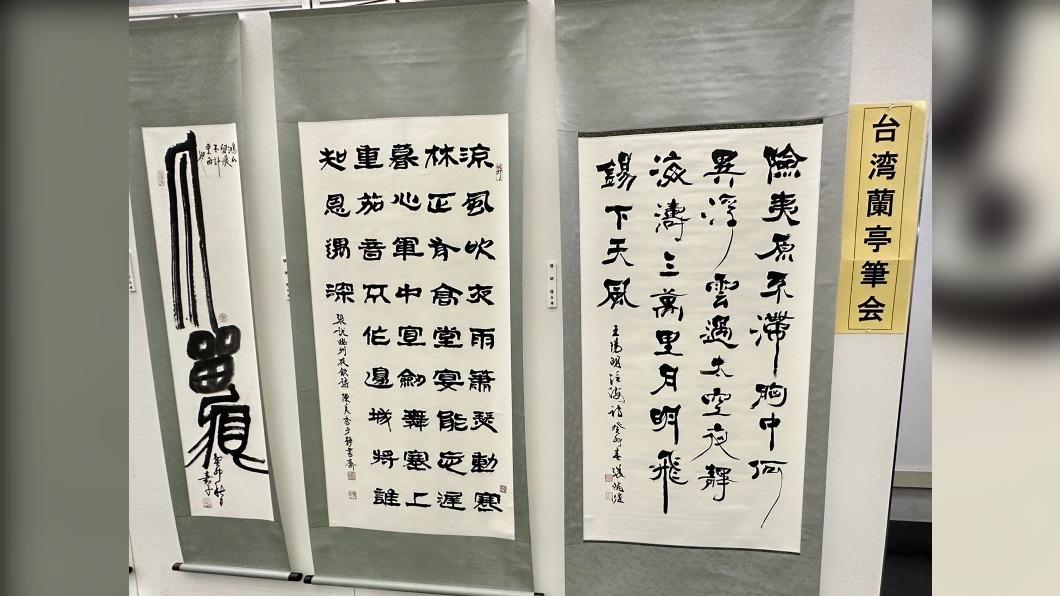 台湾蘭亭筆会
險夷原不滯胸中何
異浮雲過太空夜靜
海濤三萬里月明飛
錫下天風
王陽明泛海詩 癸卯春
涼風吹夜雨蕭瑟動寒
林正有高堂宴能忘遲
暮心軍中宜劍舞塞上
重笳音不作邊城將誰
知恩遇深
張說幽州夜飲詩
爪留痕
癸卯